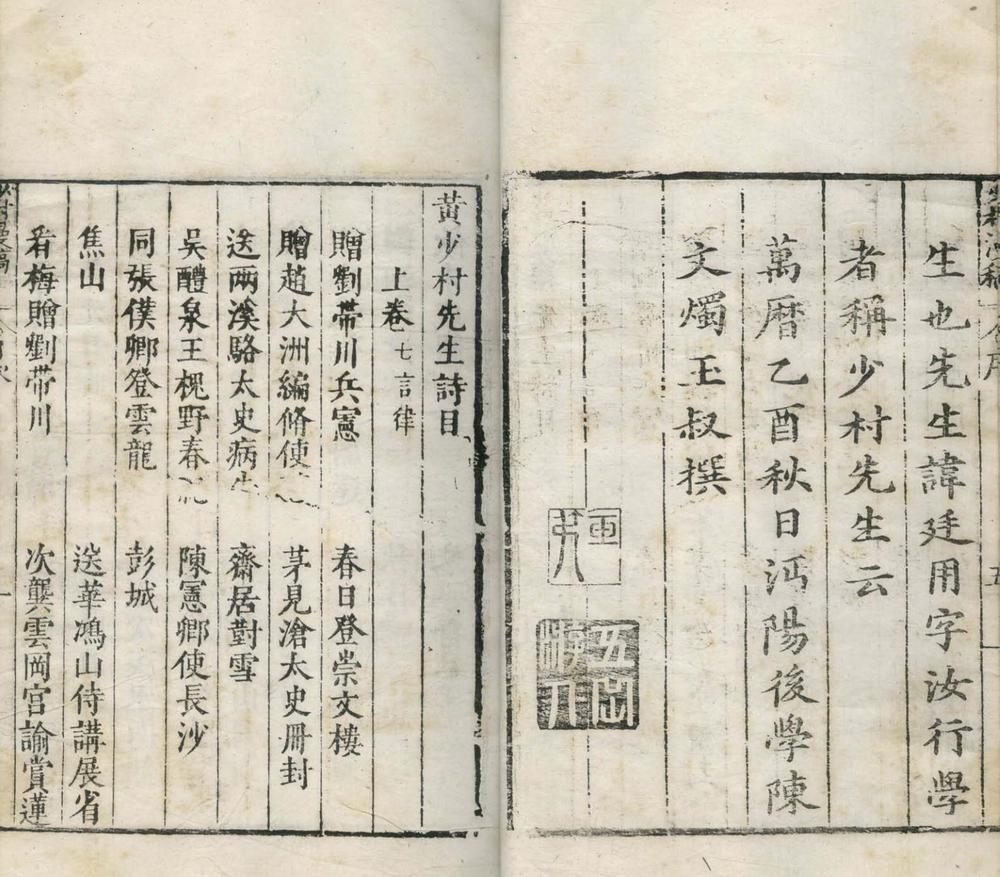 生也先生諱廷用字汝行學
者稱少村先生云
萬曆乙酉秋日沔陽後學陳
文燭玉叔撰
五
黃少村先生詩目
上卷 七言律
贈劉帶川兵憲 春日登崇文樓
贈趙大洲編脩使 茅見滄太史冊封
送兩溪駱太史病 齋居對雪
吳醴泉王槐野春 陳憲卿使長沙
同張僕卿登雲龍 彭城
焦山 送華鴻山侍講展省
看梅贈劉帶川 次龔雲岡宮諭賞蓮
一